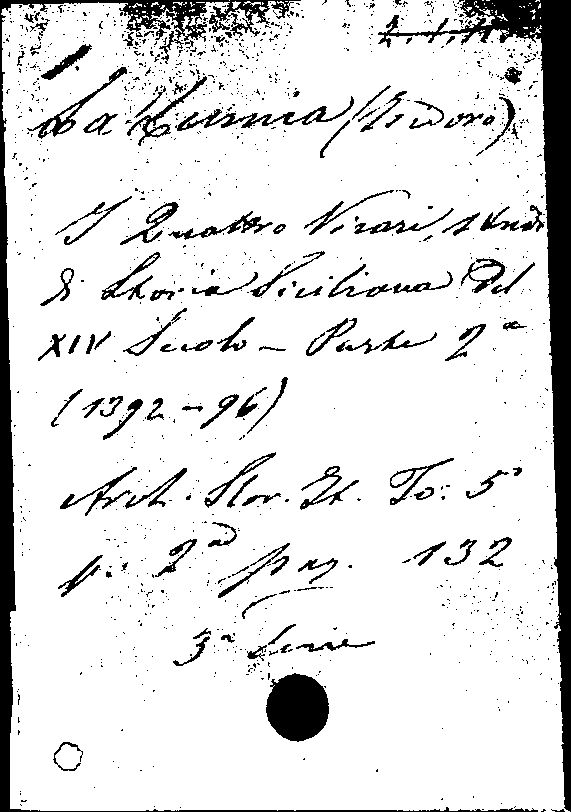 2.1.11.
La Lumia (Isidoro)
I Quattro Vicari, studi
di Storia Siciliana del
XIV Secolo – Parte 2ª
(1392–96)
Arch. Stor. It. To: 5°
p. 2ª pag. 132
3ª Serie